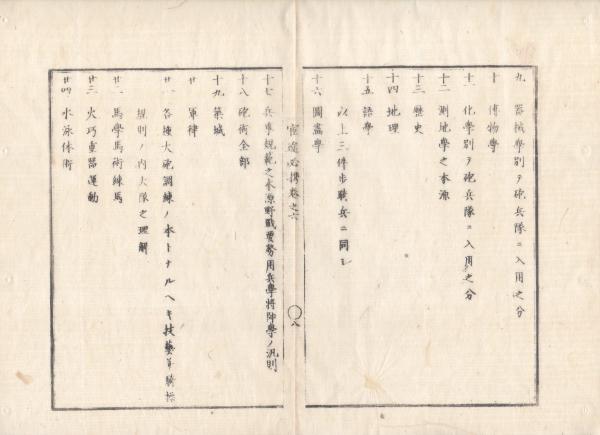 九 器械學別ヲ砲兵隊ニ入用之分
十 博物學
十一 化學別ヲ砲兵隊ニ入用之分
十二 測地學之本源
十三 歷史
十四 地理
十五 語學
以上三件歩騎兵ニ同シ
十六 圖畫學
官途必携卷之六
八
十七 兵學規範之本源野戰要務用兵學將陣學ノ汎則
十八 砲術全部
十九 築城
廿 軍律
廿一 各種大砲調練ノ本トナルヘキ技藝並騎操
規則ノ内大隊之理解
廿二 馬學馬術練馬
廿三 火巧重器運動
廿四 水泳体術